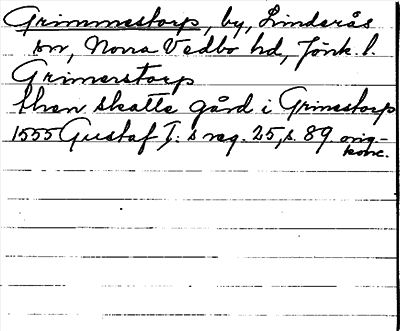 Grimmestorp, by, Linderås
sn, Norra Vedbo hd, Jönk. l.
Grimerstorp
then skatte gård i Grimestorp
1555 Gustaf I:s reg. 25, s. 89. orig-
konc.